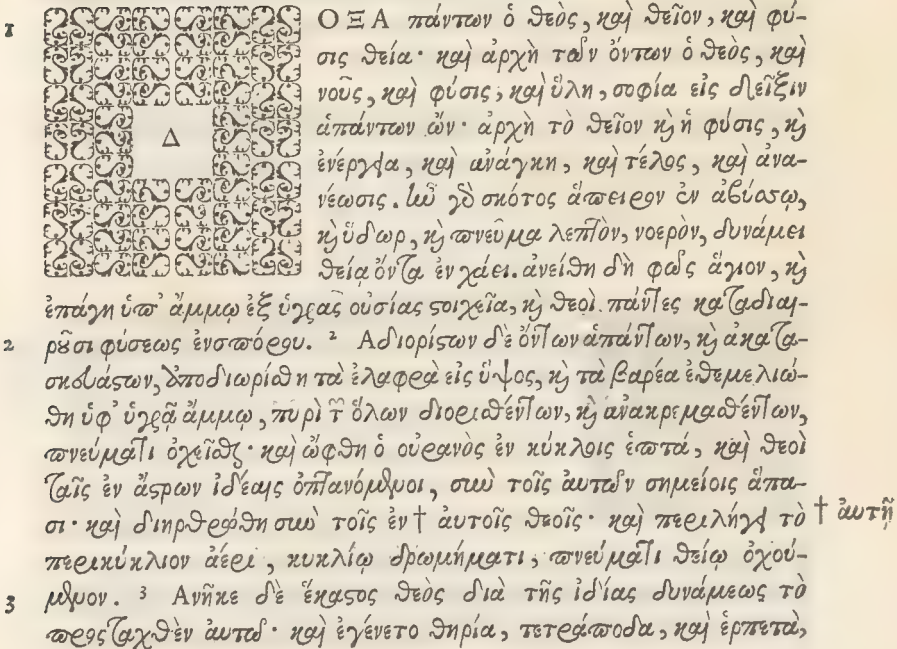 1 ΔΟΞΑ πάντων ὁ θεὸς, καὶ θεῖον, καὶ φύ-
σις θεία· καὶ ἀρχὴ τῶν ὄντων ὁ θεὸς, καὶ
νοῦς, καὶ φύσις, καὶ ὕλη, σοφία εἰς δεῖξιν
ἁπάντων ὤν· ἀρχὴ τὸ θεῖον καὶ ἡ φύσις, καὶ
ἐνέργεια, καὶ ἀνάγκη, καὶ τέλος, καὶ ἀνα-
νέωσις. ἦν γὰρ σκότος ἄπειρον ἐν ἀβύσσῳ,
καὶ ὕδωρ, καὶ πνεῦμα λεπτὸν, νοερὸν, δυνάμει
θείᾳ ὄντα ἐν χάει. ἀνείθη δὴ φῶς ἅγιον, καὶ
ἐπάγη ὑπ' ἄμμῳ ἐξ ὑγρᾶς οὐσίας στοιχεῖα, καὶ θεοὶ πάντες καταδιαι-
2 ροῦσι φύσεως ἐνσπόρου. ² Αδιορίστων δὲ ὄντων ἁπάντων, καὶ ἀκατα-
σκευάστων, ἀποδιωρίσθη τὰ ἐλαφρὰ εἰς ὕψος, καὶ τὰ βαρέα ἐθεμελιώ-
θη ὑφ' ὑγρᾷ ἄμμῳ, πυρὶ τῶν ὅλων διορισθέντων, καὶ ἀνακρεμασθέντων,
πνεύματι ὀχεῖσθαι· καὶ ὤφθη ὁ οὐρανὸς ἐν κύκλοις ἑπτὰ, καὶ θεοὶ
ταῖς ἐν ἄστρων ἰδέαις ὀπτανόμενοι, σὺν τοῖς αὐτῶν σημείοις ἅπα-
σι· καὶ διηρθρώθη σὺν τοῖς ἐν † αὐτοῖς θεοῖς· καὶ περιλήγει τὸ † αὐτῇ
περικύκλιον ἀέρι, κυκλίῳ δρωμήματι, πνεύματι θείῳ ὀχού-
3 μενον. ³ Ανῆκε δὲ ἕκαστος θεὸς διὰ τῆς ἰδίας δυνάμεως τὸ
προσταχθὲν αὐτῷ· καὶ ἐγένετο θηρία, τετράποδα, καὶ ἑρπετὰ,